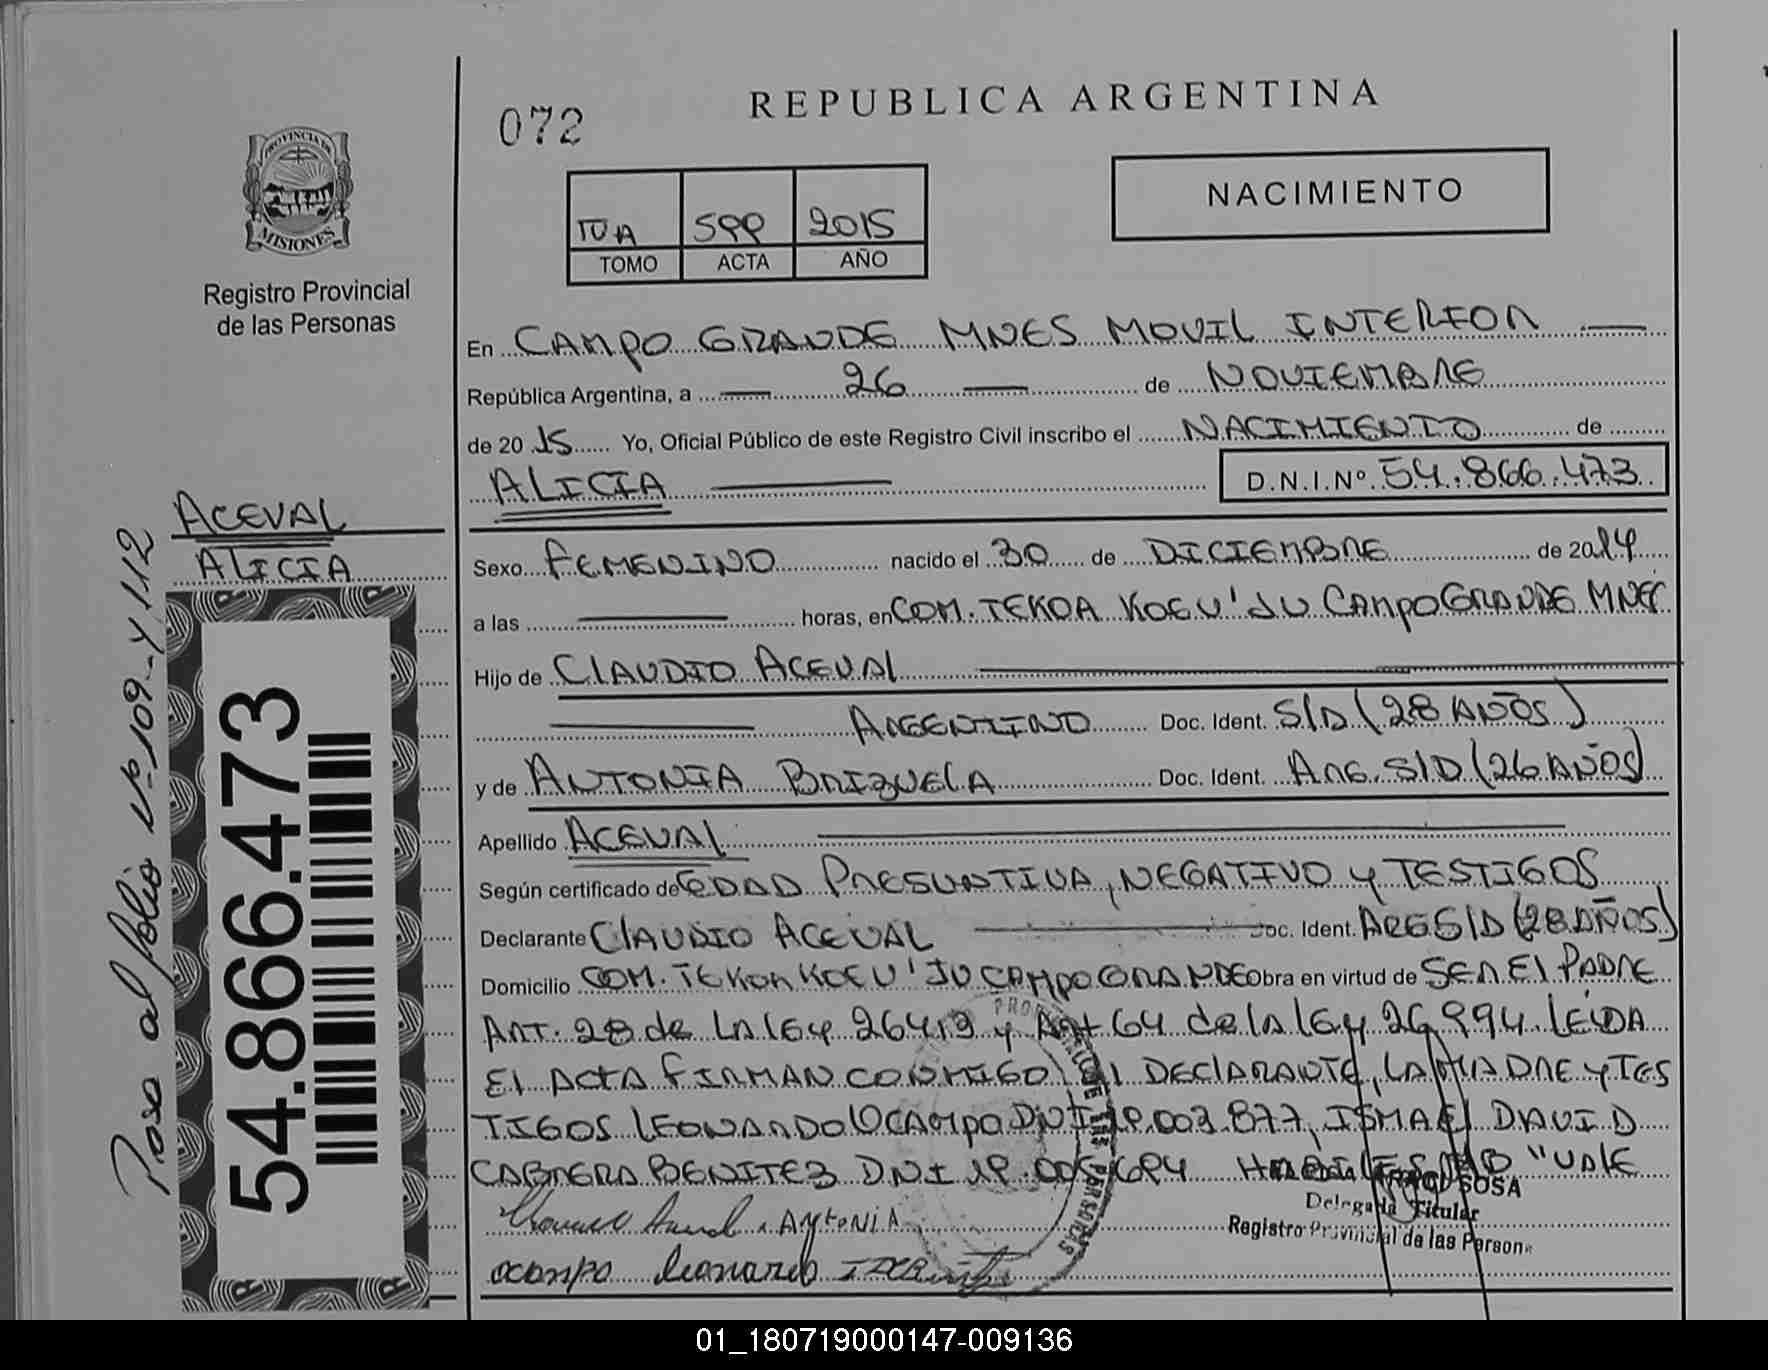 REPUBLICA ARGENTINA
072
NACIMIENTO
PROVINCIA DE
MISIONES
Registro Provincial
de las Personas
IV A 599 2015
TOMO ACTA AÑO
En CAMPO GRANDE MNES MOVIL INTERIOR
República Argentina, a 26 de NOVIEMBRE
de 2015 Yo, Oficial Público de este Registro Civil inscribo el NACIMIENTO de
ALICIA D.N.I.Nº 54.866.473
ACEVAL
ALICIA
Pasa al folio Nº 109 - y 112
54.866.473
Sexo FEMENINO nacido el 30 de DICIEMBRE de 2014
a las horas, en COM. TEKOA KOEU'JU CAMPO GRANDE MNES
Hijo de CLAUDIO ACEVAL
ARGENTINO Doc. Ident. S/D (28 AÑOS)
y de ANTONIA BRIZUELA Doc. Ident. ARG. S/D (26 AÑOS)
Apellido ACEVAL
Según certificado de EDAD PRESUNTIVA, NEGATIVO y TESTIGOS
Declarante CLAUDIO ACEVAL Doc. Ident. ARG S/D (28 AÑOS)
Domicilio COM. TEKOA KOEU'JU CAMPO GRANDE Obra en virtud de SER El PADRE
ART. 28 de LA lEy 26413 y Art 64 de la lEy 26994. LEIDA
El ACTA FIRMAN CONMIGO El DECLARANTE, LA MADRE y TES
TIGOS LEONARDO OCAMPO DNI 19.003.877, ISMAEL DAVID
CABRERA BENITEZ DNI 19.005.694 "VALE
SOSA
Delegada Titular
Registro Provincial de las Person
ANtoNiA
ocampo leonardo
01_180719000147-009136